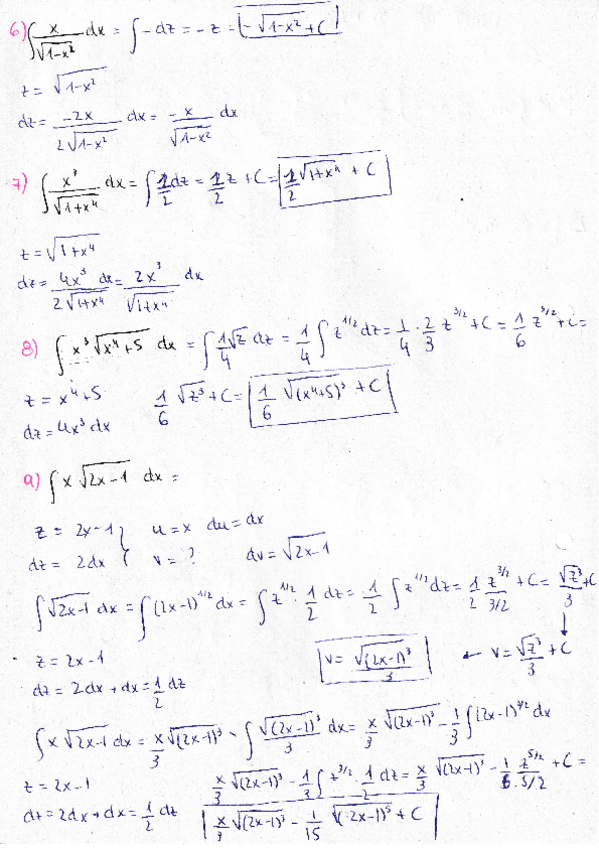 6) ∫ x/√(1-x²) dx = ∫ -dz = -z = -√(1-x²) + C
z = √(1-x²)
dz = -2x/(2√(1-x²)) dx = -x/√(1-x²) dx
7) ∫ x³/√(1+x⁴) dx = ∫ 1/2 dz = 1/2 z + C = 1/2 √(1+x⁴) + C
z = √(1+x⁴)
dz = 4x³/(2√(1+x⁴)) dx = 2x³/√(1+x⁴) dx
8) ∫ x³ √(x⁴+5) dx = ∫ 1/4 √z dz = 1/4 ∫ z^(1/2) dz = 1/4 · 2/3 z^(3/2) + C = 1/6 z^(3/2) + C =
z = x⁴+5 1/6 √z³ + C = 1/6 √(x⁴+5)³ + C
dz = 4x³ dx
9) ∫ x √(2x-1) dx =
z = 2x-1 } u = x du = dx
dz = 2dx { v = ? dv = √(2x-1)
∫ √(2x-1) dx = ∫ (2x-1)^(1/2) dx = ∫ z^(1/2) · 1/2 dz = 1/2 ∫ z^(1/2) dz = 1/2 z^(3/2)/(3/2) + C = √z³/3 + C
z = 2x-1 v = √(2x-1)³/3 ← v = √z³/3 + C
dz = 2dx → dx = 1/2 dz
∫ x √(2x-1) dx = x/3 √(2x-1)³ - ∫ √(2x-1)³/3 dx = x/3 √(2x-1)³ - 1/3 ∫ (2x-1)^(3/2) dx
z = 2x-1 x/3 √(2x-1)³ - 1/3 ∫ z^(3/2) · 1/2 dz = x/3 √(2x-1)³ - 1/6 · z^(5/2)/(5/2) + C =
dz = 2dx → dx = 1/2 dz x/3 √(2x-1)³ - 1/15 √(2x-1)⁵ + C